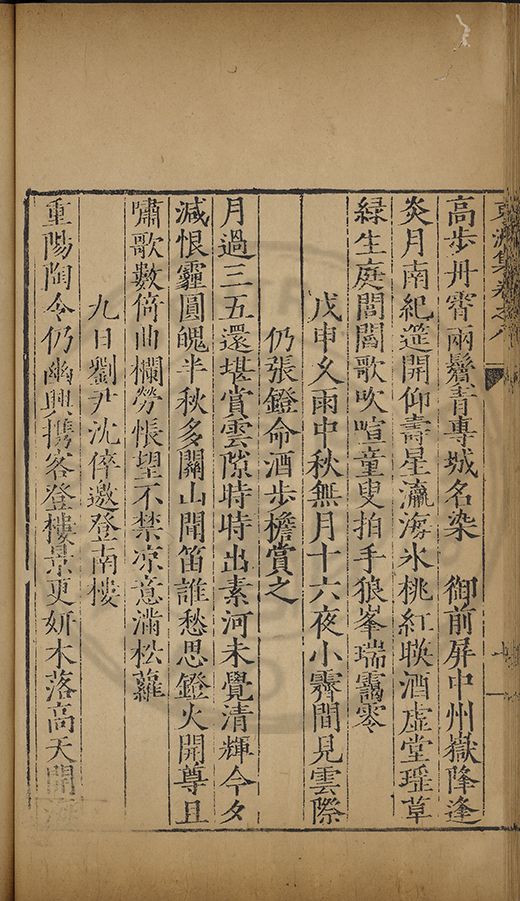 集卷之八
高步丹霄兩鬢青專城名染　御前屏中州嶽降逢
炎月南紀筵開仰壽星瀛海氷桃紅暎酒虛堂瑶草
緑生庭閭閻歌吹喧童叟拍手狼峯瑞靄零
戊申久雨中秋無月十六夜小霽間見雲際
仍張鐙命酒步檐賞之
月過三五還堪賞雲隙時時出素河未覺清輝今夕
減恨霾圓魄半秋多關山聞笛誰愁思鐙火開尊且
嘯歌數倚曲欄勞悵望不禁凉意滿松蘿
九日劉尹沈倅邀登南樓
重陽陶令仍幽興携客登樓景更妍木落高天開